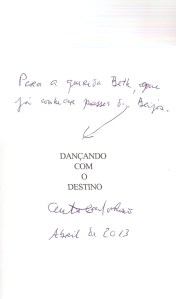 Para a querida Beth, que
já conhece passos d... Beijos.
DANÇANDO
COM
O
DESTINO
Abril de 2013